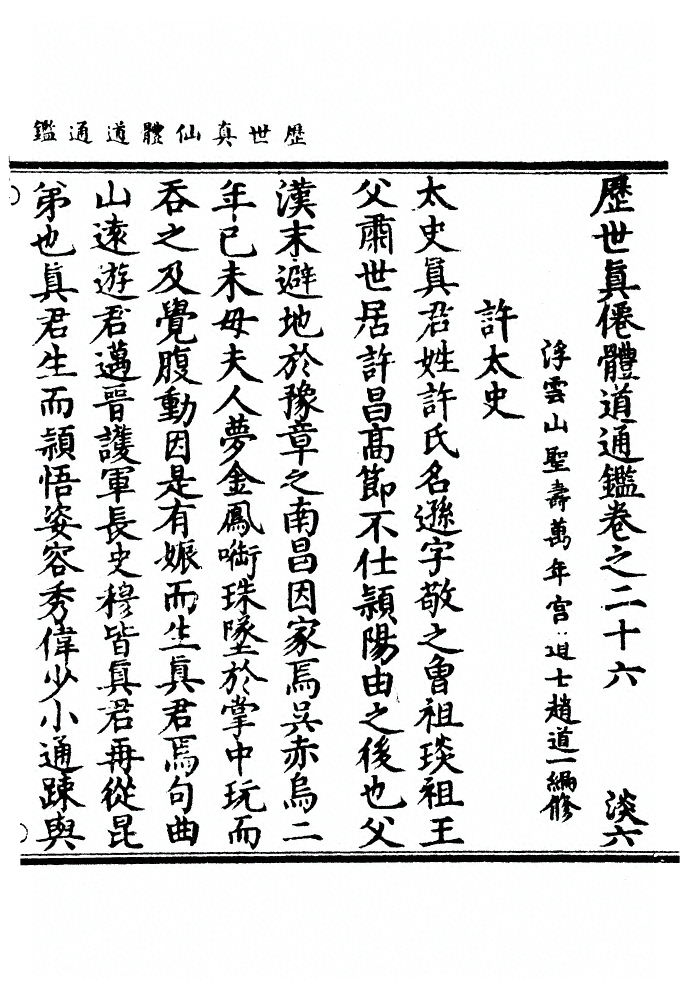 歷世真仙體道通鑑
歷世真僊體道通鑑卷之二十六 淡六
浮雲山聖壽萬年宮道士趙道一編修
許太史
太史真君姓許氏名遜字敬之曾祖琰祖玉
父肅世居許昌高節不仕潁陽由之後也父
漢末避地於豫章之南昌因家焉吳赤烏二
年己未母夫人夢金鳳啣珠墜於掌中玩而
吞之及覺腹動因是有娠而生真君焉句曲
山遠遊君邁晉護軍長史穆皆真君再從昆
弟也真君生而穎悟姿容秀偉少小通踈與